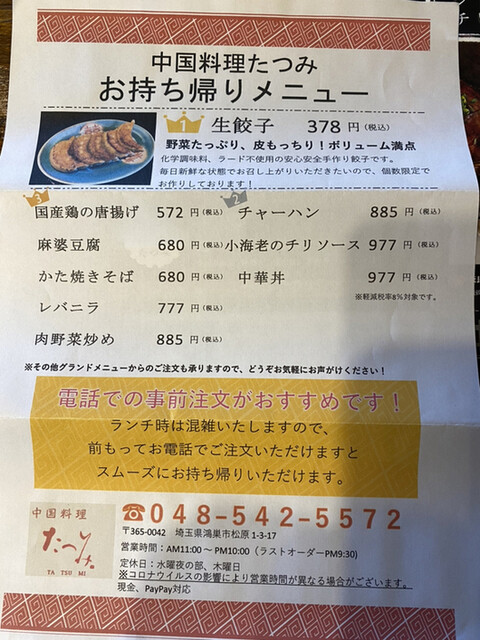 中国料理たつみ
お持ち帰りメニュー
1 生餃子 378 円(税込)
野菜たっぷり、皮もっちり！ボリューム満点
化学調味料、ラード不使用の安心安全手作り餃子です。
毎日新鮮な状態でお召し上がりいただきたいので、個数限定で
お作りしております！
3 国産鶏の唐揚げ 572 円(税込)
2 チャーハン 885 円(税込)
麻婆豆腐 680 円(税込)
小海老のチリソース 977 円(税込)
かた焼きそば 680 円(税込)
中華丼 977 円(税込)
※軽減税率8％対象です。
レバニラ 777 円(税込)
肉野菜炒め 885 円(税込)
※その他グランドメニューからのご注文も承りますので、どうぞお気軽にお声がけください！
電話での事前注文がおすすめです！
ランチ時は混雑いたしますので、
前もってお電話でご注文いただけますと
スムーズにお持ち帰りいただけます。
中国料理
たつみ
TA TSU MI
☎048-542-5572
〒365-0042 埼玉県鴻巣市松原 1-3-17
営業時間：AM11:00 ～ PM10:00（ラストオーダーPM9:30）
定休日：水曜夜の部、木曜日
※コロナウイルスの影響により営業時間が異なる場合がございます。
現金、PayPay対応